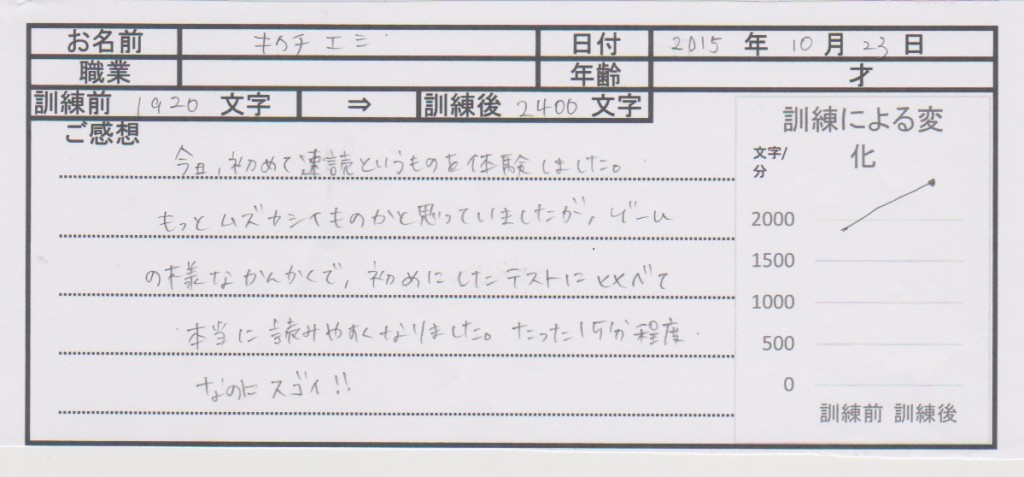 お名前 キクチ エミ 日付 2015 年 10 月 23 日
職業 年齢 才
訓練前 1920 文字 ⇒ 訓練後 2400 文字
ご感想
今日,初めて速読というものを体験しました。
もっとムズカシイものかと思っていましたが,ゲーム
の様なかんかくで,初めにしたテストに比べて
本当に読みやすくなりました。たった15分程度
なのにスゴイ!!
訓練による変
化
文字/
分
2000
1500
1000
500
0
訓練前 訓練後